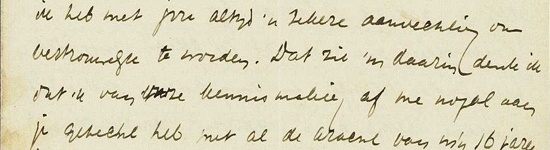 ik heb met jou altyd 'n zekere aanvechting om
vertrouwelyk te worden. Dat zit 'm daarin, denk ik
dat ik van onze kennismaking af me nogal aan
je gehecht heb met al de van m'n 16 jaren